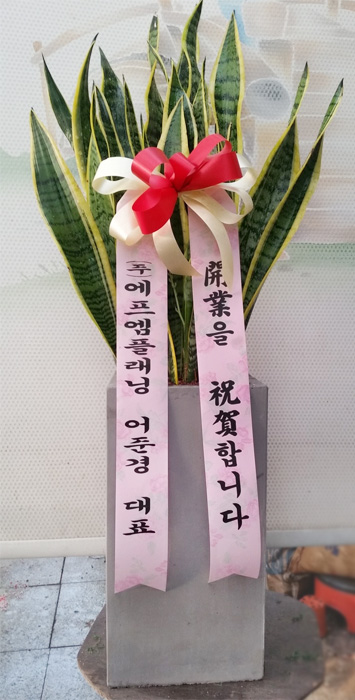 開業을 祝賀합니다
(주)에프엠플래닝 어준경 대표